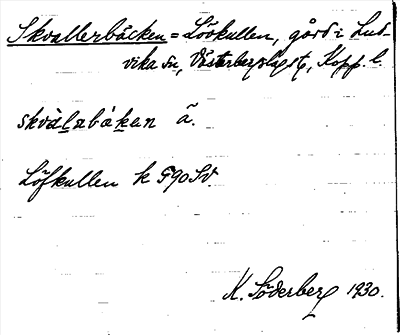 Skvallerbäcken = Lövkullen, gård i Lud-
vika sn, Västerbergslags tg, Kopp. l.
skvàlrbäkan ã.
Löfkullen k 590 SV.
K. Söderberg 1930.